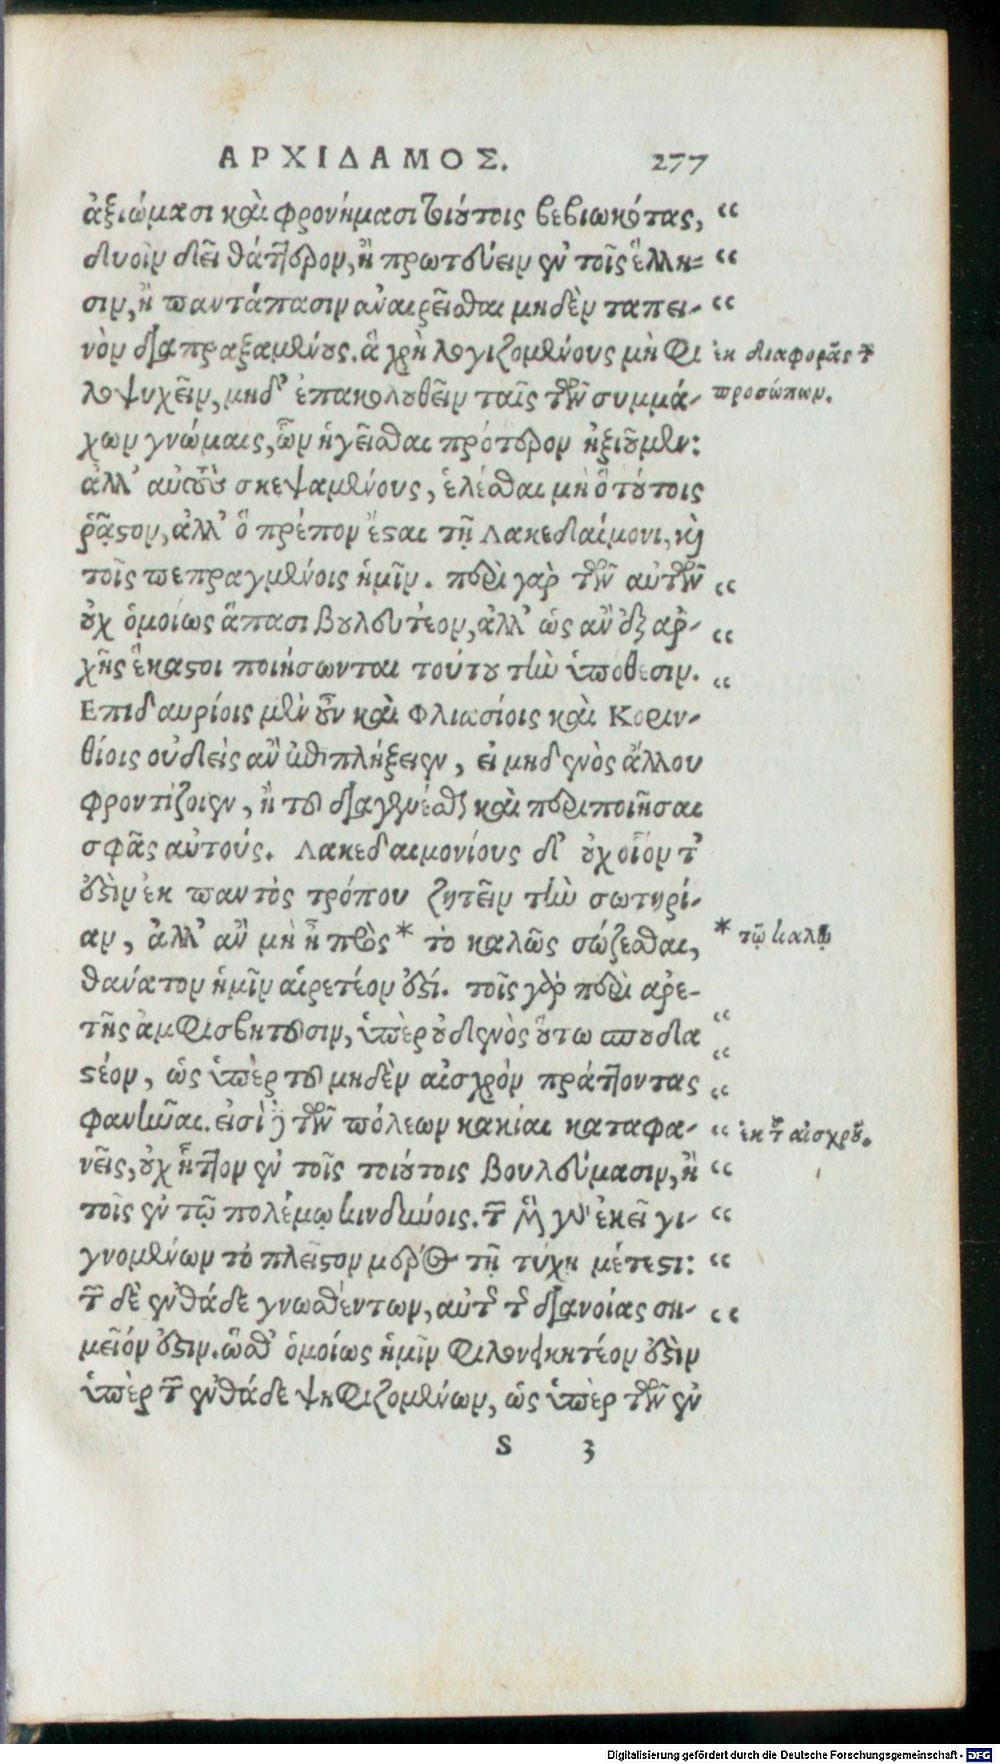 ΑΡΧΙΔΑΜΟΣ. 277
ἀξιώμασι καὶ φρονήμασι τοιούτοις βεβιωκότας, “
δυοῖν δεῖ θάτερον, ἢ πρωτεύειν ἐν τοῖς ἕλλη= “
σιν, ἢ παντάπασιν ἀναιρεῖσθαι μηδὲν ταπει- “
νὸν διαπραξαμένους. ἃ χρὴ λογιζομένους μὴ φι ἐκ διαφορᾶς τῶν
λοψυχεῖν, μηδ' ἐπακολουθεῖν ταῖς τῶν συμμά- προσώπων.
χων γνώμαις, ὧν ἡγεῖσθαι πρότερον ἠξιοῦμεν:
ἀλλ' αὐτοὺς σκεψαμένους, ἑλέσθαι μὴ ὃ τούτοις
ῥᾷστον, ἀλλ' ὃ πρέπον ἔσται τῇ Λακεδαίμονι, καὶ
τοῖς πεπραγμένοις ἡμῖν. περὶ γὰρ τῶν αὐτῶν “
οὐχ ὁμοίως ἅπασι βουλευτέον, ἀλλ' ὡς ἂν ἐξ ἀρ- “
χῆς ἕκαστοι ποιήσωνται τούτου τὴν ὑπόθεσιν. “
Επιδαυρίοις μὲν οὖν καὶ Φλιασίοις καὶ Κοριν-
θίοις οὐδεὶς ἂν ἐπιπλήξειεν, εἰ μηδενὸς ἄλλου
φροντίζοιεν, ἢ τοῦ διαγενέσθαι καὶ περιποιῆσαι
σφᾶς αὐτούς. Λακεδαιμονίους δ' οὐχ οἷόν τ'
ἐστὶν ἐκ παντὸς τρόπου ζητεῖν τὴν σωτηρί-
αν, ἀλλ' ἂν μὴ ᾖ πρὸς * τὸ καλῶς σώζεσθαι, * τῷ καλῷ
θάνατον ἡμῖν αἱρετέον ἐστί. τοῖς γὰρ περὶ ἀρε-
τῆς ἀμφισβητοῦσιν, ὑπὲρ οὐδενὸς οὕτω σπουδα “
στέον, ὡς ὑπὲρ τοῦ μηδὲν αἰσχρὸν πράττοντας “
φανῆναι. εἰσὶ δὲ τῶν πόλεων κακίαι καταφα- “ ἐκ τοῦ αἰσχροῦ.
νεῖς, οὐχ ἧττον ἐν τοῖς τοιούτοις βουλεύμασιν, ἢ “
τοῖς ἐν τῷ πολέμῳ κινδύνοις. τῶν μὲν γὰρ ἐκεῖ γι- “
γνομένων τὸ πλεῖστον μέρος τῇ τύχῃ μέτεστι: “
τῶν δὲ ἐνθάδε γνωσθέντων, αὐτῆς τῆς διανοίας ση- “
μεῖόν ἐστιν. ὥσθ' ὁμοίως ἡμῖν φιλονεικητέον ἐστὶν
ὑπὲρ τῶν ἐνθάδε ψηφιζομένων, ὡς ὑπὲρ τῶν ἐν
S 3
Digitalisierung gefördert durch die Deutsche Forschungsgemeinschaft - DFG